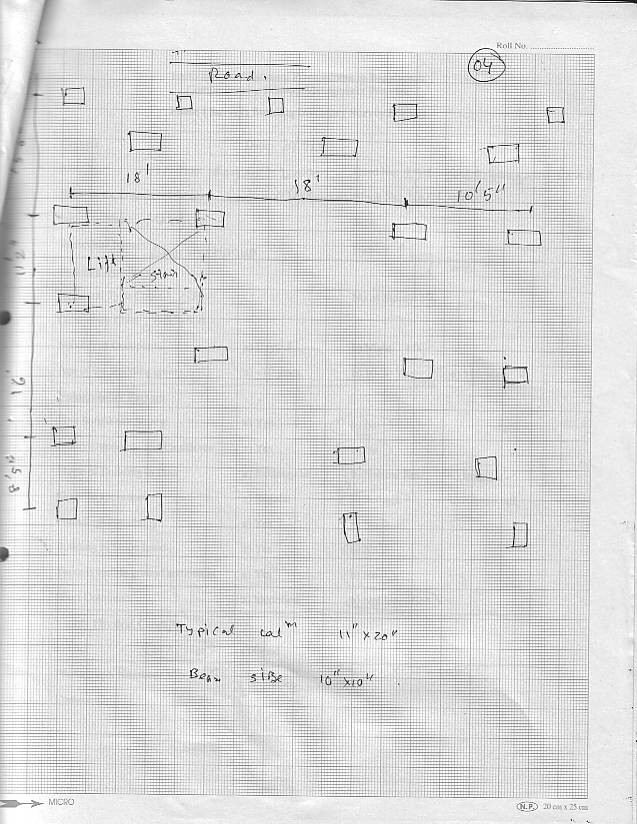 Roll No.
04
Road.
18'
18'
10'5"
Lift
stair
Typical colᵐ 11" x 20"
Beam size 10" x 10"
MICRO
N.P. 20 cm x 25 cm